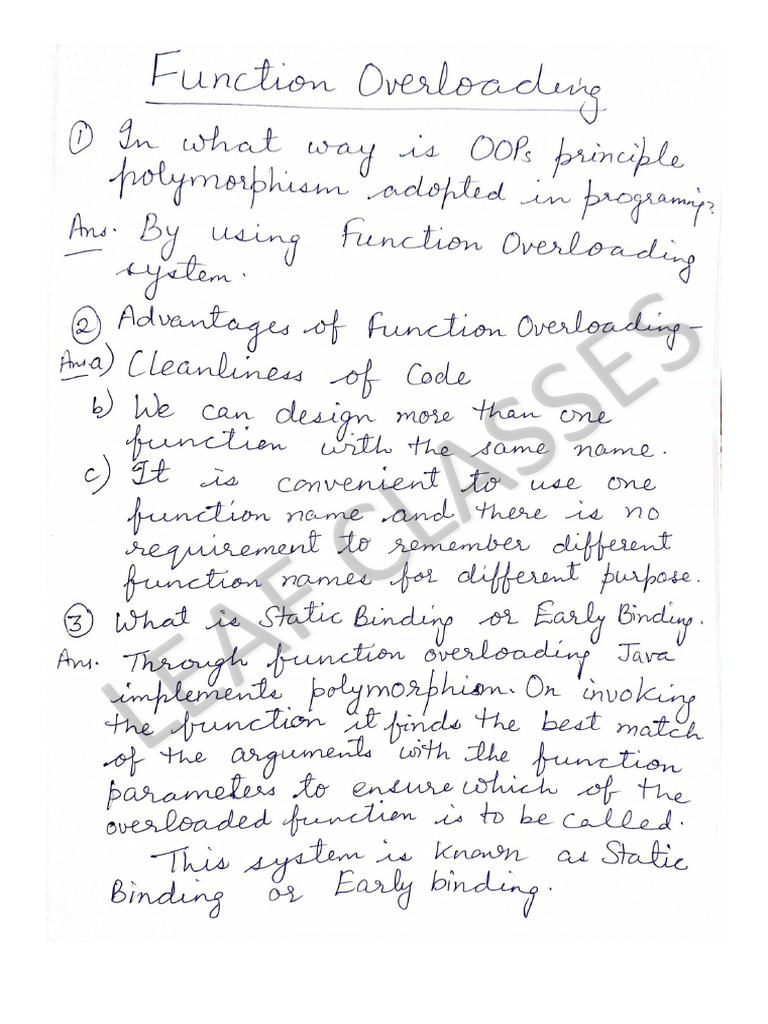 Function Overloading
① In what way is OOPs principle
polymorphism adopted in programing?
Ans. By using Function Overloading
system.
② Advantages of Function Overloading-
Ans a) Cleanliness of Code
b) We can design more than one
function with the same name.
c) It is convenient to use one
function name and there is no
requirement to remember different
function names for different purpose.
③ What is Static Binding or Early Binding.
Ans. Through function overloading Java
implements polymorphism. On invoking
the function it finds the best match
of the arguments with the function
parameters to ensure which of the
overloaded function is to be called.
This system is known as Static
Binding or Early binding.
LEAF CLASSES